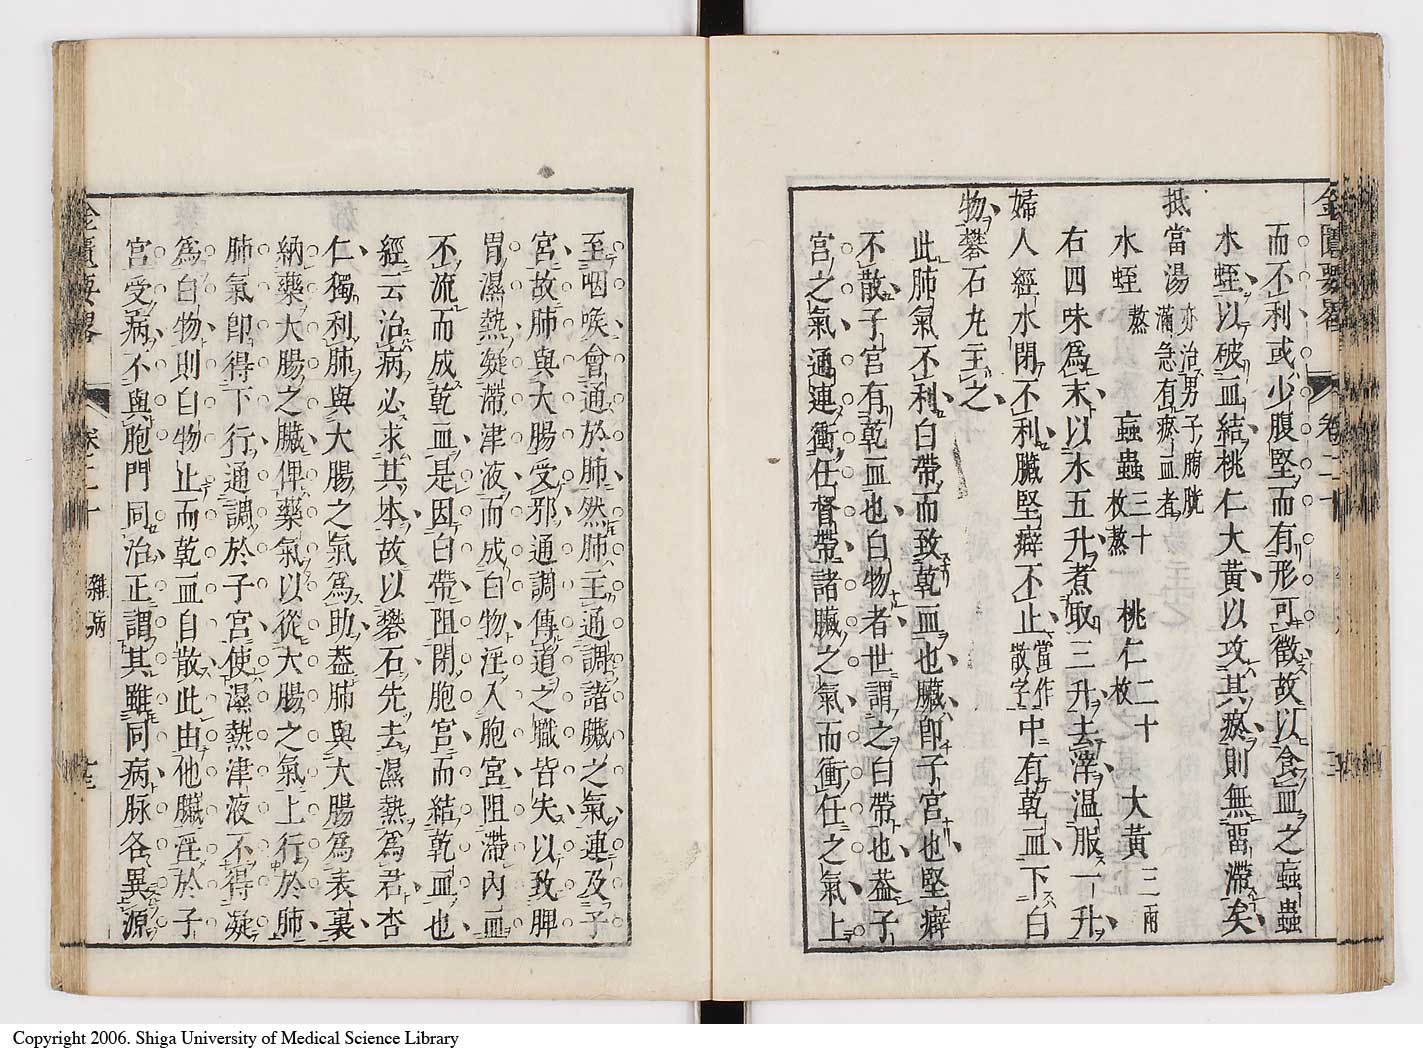 金匱要畧 卷二十
而不利或少腹堅而有形可徵故以食血之䖟蟲
水蛭以破血結桃仁大黃以攻其瘀則無畱滯矣
抵當湯 亦治男子膀胱滿急有瘀血者
水蛭 熬 䖟蟲 三十枚蒸 桃仁 二十枚 大黃 三兩
右四味爲末以水五升煮取三升去滓温服一升
婦人經水閉不利臟堅癖不止 當作散字 中有乾血下白
物礬石丸主之
此肺氣不利白帶而致乾血也臟卽子宮也堅癖
不散子宮有乾血也白物者世謂之白帶也葢子
宮之氣通連衝任督帶諸臟之氣而衝任之氣上
至咽喉會通於肺然肺主通調諸臟之氣連及子
宮故肺與大腸受邪通調傳道之職皆失以致脾
胃濕熱凝滯津液而成白物淫入胞宮阻滯內血
不流而成乾血是因白帶阻閉胞宮而結乾血也
經云治病必求其本故以礬石先去濕熱爲君杏
仁獨利肺與大腸之氣爲助葢肺與大腸爲表裏
納藥大腸之臟俾藥氣以從大腸之氣上行於肺
肺氣卽得下行通調於子宮使濕熱津液不得凝
爲白物則白物止而乾血自散此由他臟淫於子
宮受病不與胞門同治正謂其雖同病脉各異源
金匱要畧 卷二十 雜病
Copyright 2006. Shiga University of Medical Science Library